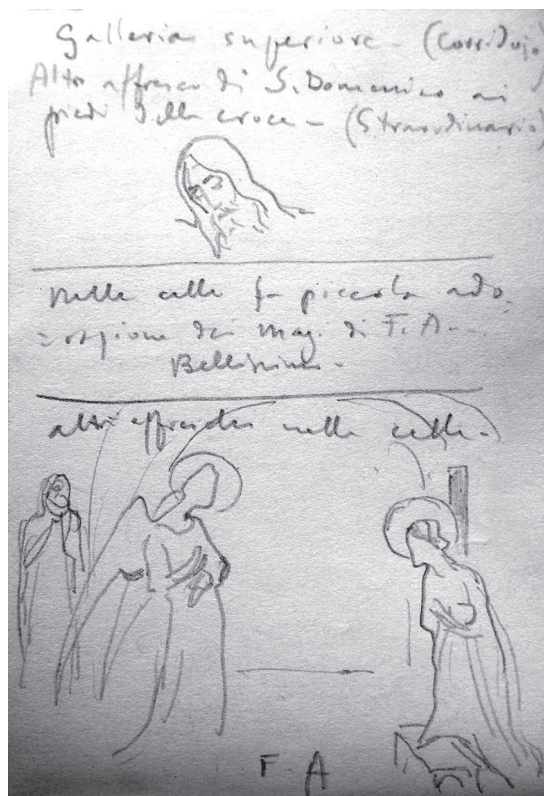 Galleria superiore - (Corridojo)
Altro affresco di S. Domenico ai
piedi della croce - (Straordinario)
Nelle celle la piccola ado-
=razione dei Magi di F. A. ...
Bellissimo -
altri affreschi nelle celle -
F. A